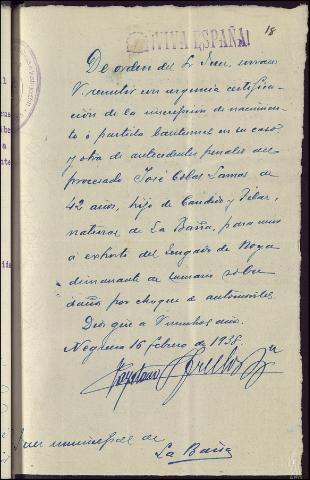 ¡VIVA ESPAÑA!
18
De orden del Sr Juez, sírvase
V. remitir con urgencia certifica-
ción de la inscripción de nacimien-
to ó partida bautismos en su caso
y otra de antecedentes penales del
procesado José Cobas Lamas de
42 años, hijo de Candido y Pilar,
natural de La Baña, para unir
á exhorto del Juzgado de Noya
dimanante de sumario sobre
daños por choque de automóviles
Dios gue a V. muchos años.
Negreira 16 febrero de 1938.
Cayetano
Juez municipal de
La Baña